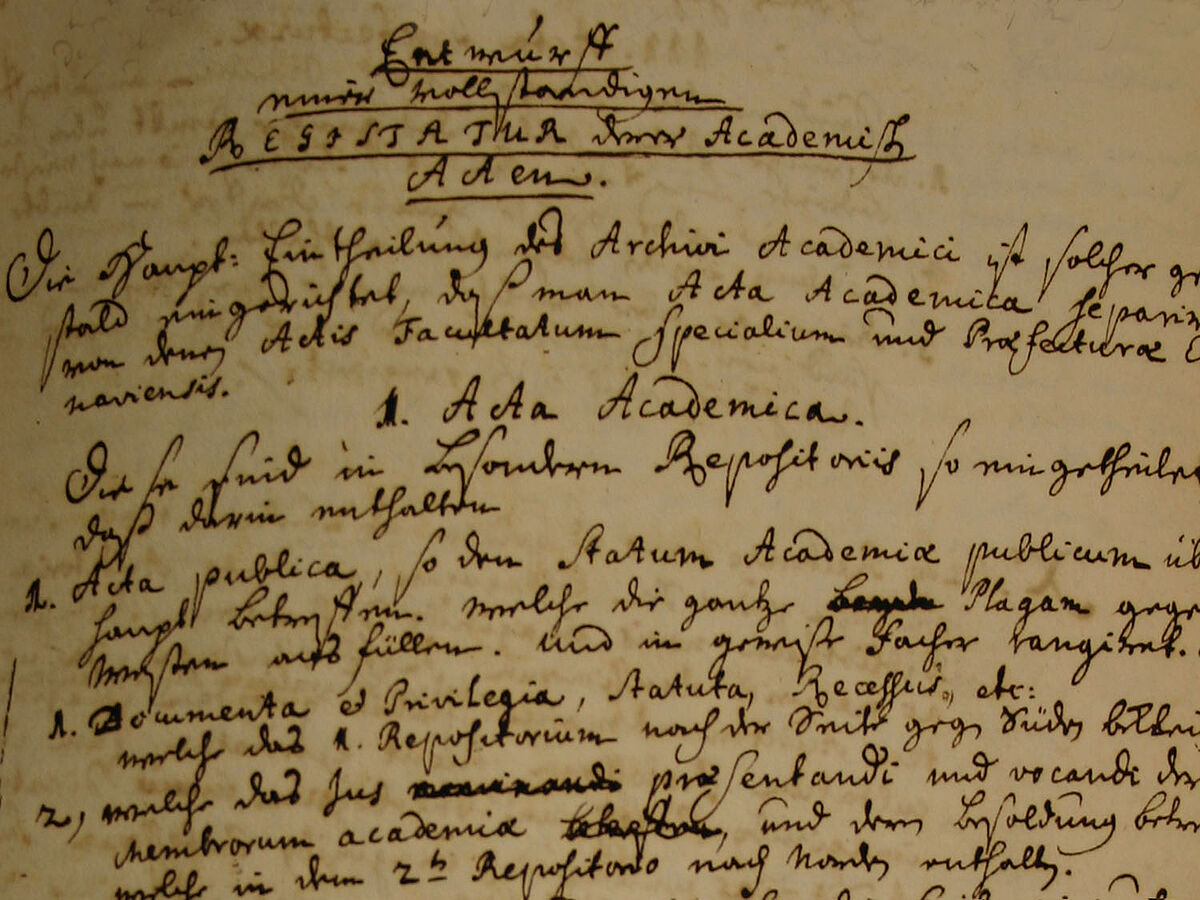 Entwurff
einer vollständigen
REGISTATUR derer Academisch
Acten.
Die Haupt: Eintheilung des Archivi Academici ist solcher ge
stald eingerichtet, daß man Acta Academica separir
von denen Actis Facultatum specialium und Præfecturæ
naviensis.
1. Acta Academica.
Diese seind in besondern Repositoriis so eingetheilet
daß darin enthalten
1. Acta publica, so den Statum Academiæ publicum üb
haupt betreffen. welche die gantze Plagam gege
Westen ausfüllen. und in gewisse Facher rangiret.
1. Documenta et Privilegia, Statuta, Recessus, etc:
welche das 1. Repositorium nach der Seite gegen Süden
2, welche das Jus præsentandi und vocandi der
Membrorum academiæ, und deren Besoldung betre
welche in dem 2ten Repositorio nach Norden enthalten.